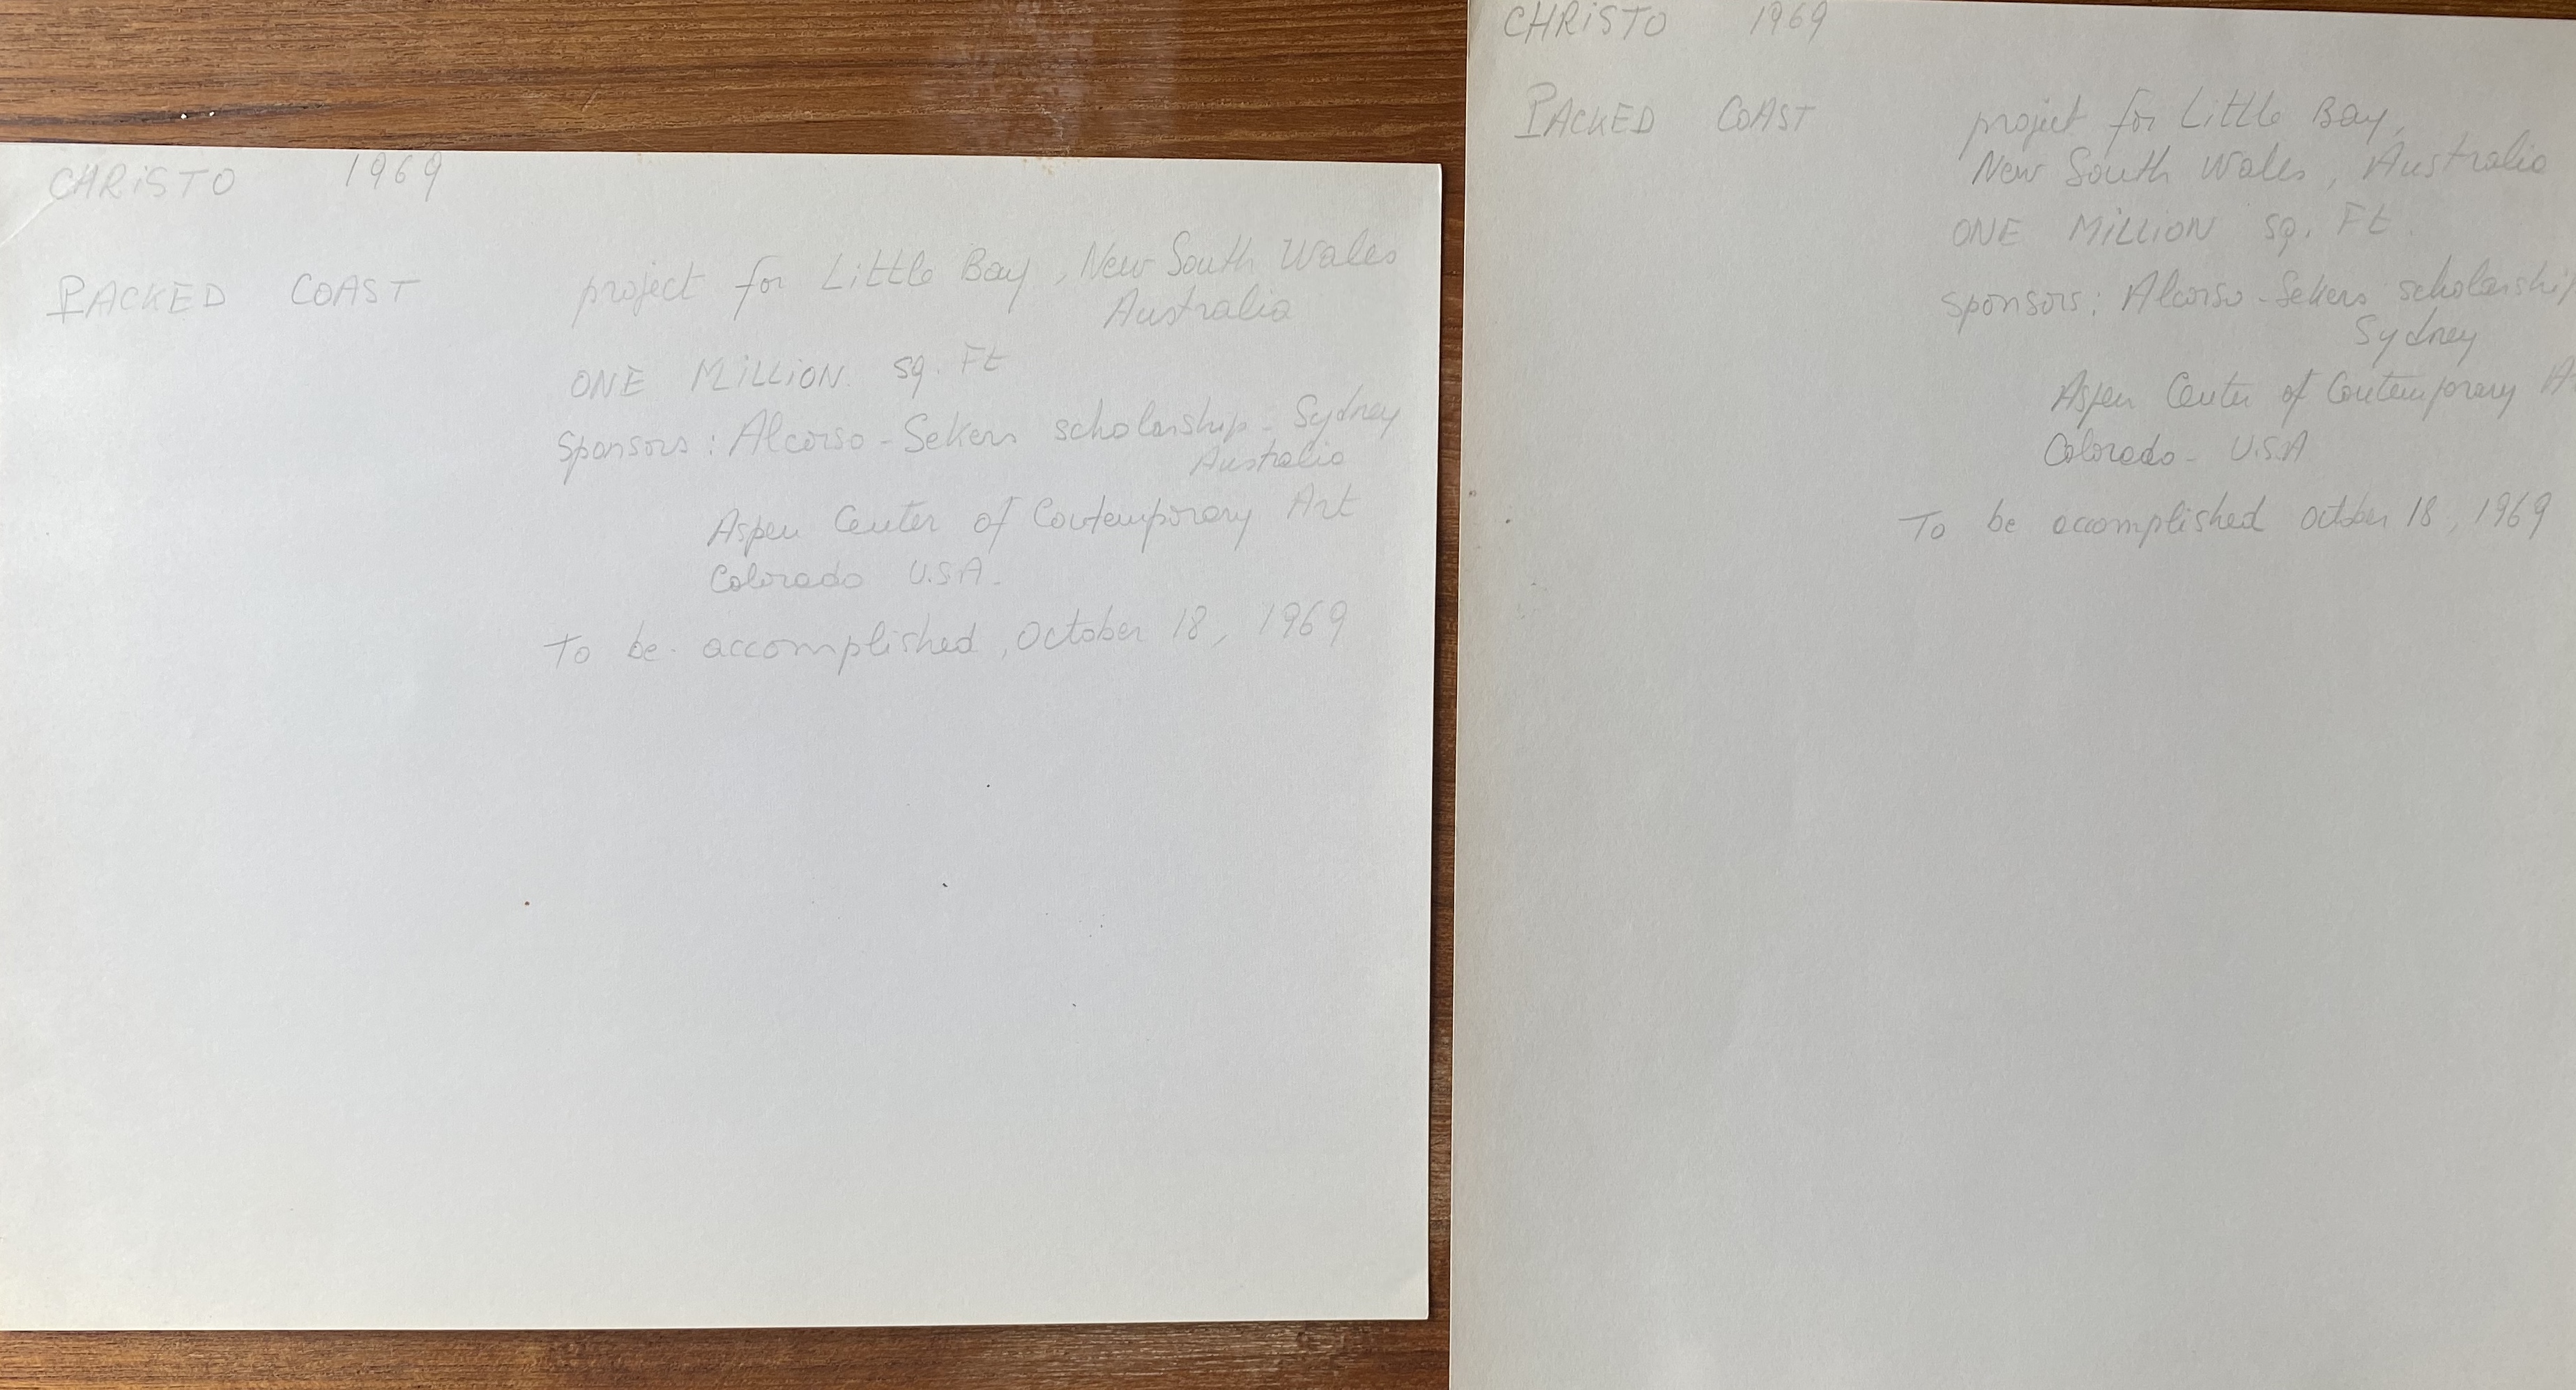 CHRiSTO 1969
PACKED COAST project for Little Bay, New South Wales
Australia
ONE MiLLiON. sq. Ft
Sponsors: Alcorso - Sekers scholarship - Sydney
Australia
Aspen Center of Contemporary Art
Colorado U.S.A.
To be accomplished, October 18, 1969
CHRiSTO 1969
PACKED COAST project for Little Bay,
New South Wales, Australia
ONE MiLLiON sq. Ft.
Sponsors: Alcorso - Sekers scholarship
Sydney
Aspen Center of Contemporary A
Colorado - U.S.A
To be accomplished October 18, 1969